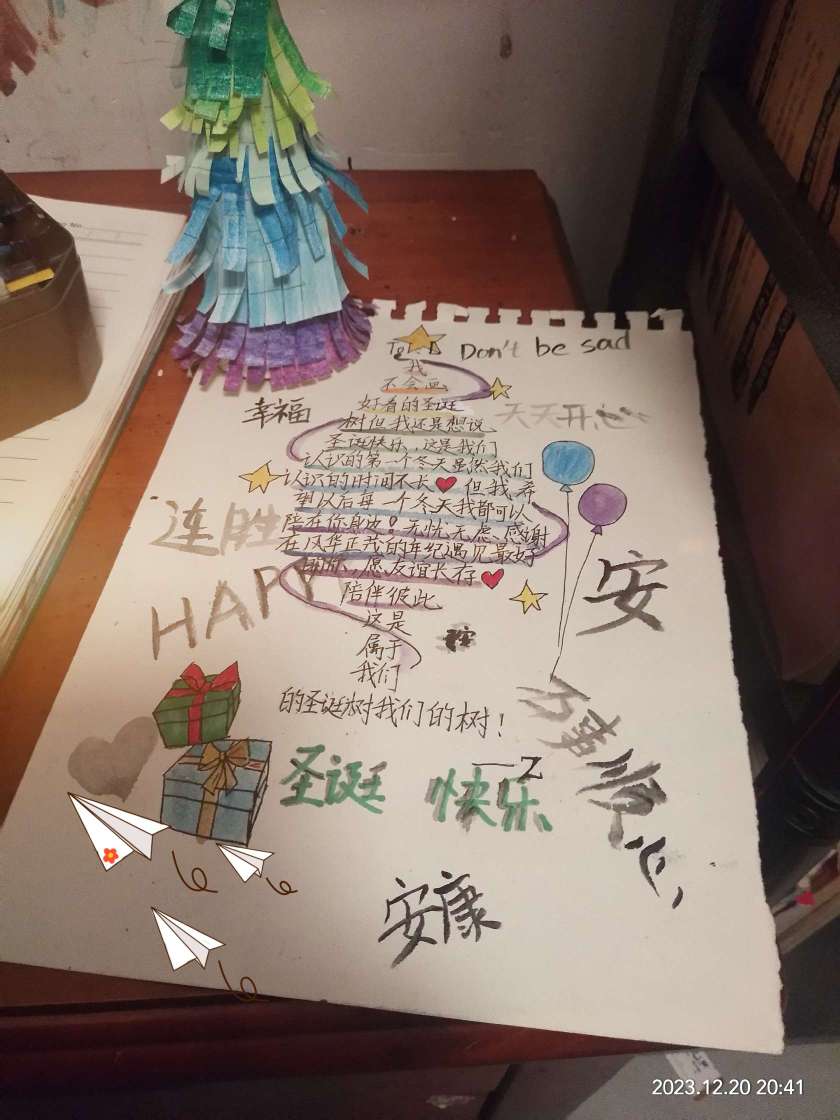 Don't be sad
我
不会画
好看的圣诞
幸福
天天开心
树但我还是想说
圣诞快乐，这是我们
认识的第一个冬天虽然我们
认识的时间不长❤但我希
望以后每一个冬天我都可以
陪在你身边！无忧无虑、感谢
连胜
在风华正茂的年纪遇见最好
的你，愿友谊长存❤
HAPPY
陪伴彼此
安
这是
属于
我们
的圣诞树我们的树！
万事顺心
—Z
圣诞 快乐
安康
2023.12.20 20:41